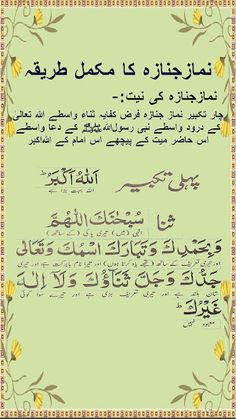 نماز جنازہ کا مکمل طریقہ
نماز جنازہ کی نیت:-
چار تکبیر نماز جنازہ فرض کفایہ ثناء واسطے اللہ تعالیٰ
کے درود واسطے نبی رسول اللہ ﷺ کے دعا واسطے
اس حاضر میت کے پیچھے اس امام کے اللہ اکبر
پہلی تکبیر اَللّٰهُ اَكْبَرُ ط
اللہ بہت بڑا ہے
ثنا سُبْحٰنَكَ اللّٰهُمَّ
وَبِحَمْدِكَ وَتَبَارَكَ اسْمُكَ وَتَعَالٰى
جَدُّكَ وَجَلَّ ثَنَاؤُكَ وَلَآ اِلٰهَ
غَيْرُكَ ط
معبود نہیں